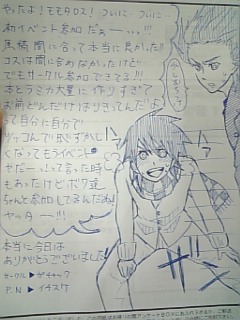 やったよ！モモタロス！ついに…ついに…
初イベント参加だぁー…!!!
原稿間に合って本当に良かった!!
コスは間に合わなかったけど
でもサークル参加できてる!!
本とラミカ大量に作りすぎて
お前どんだけはりきってんだよ
って自分に自分で
ツッコんで恥ずかしく
なってもうイベント
せだーっって言った時
もあったけどボク達
ちゃんと参加してるんだね!
ヤッター!!!
本当に今日は
ありがとうございました!
サークル▶
P.N▶イチスケ